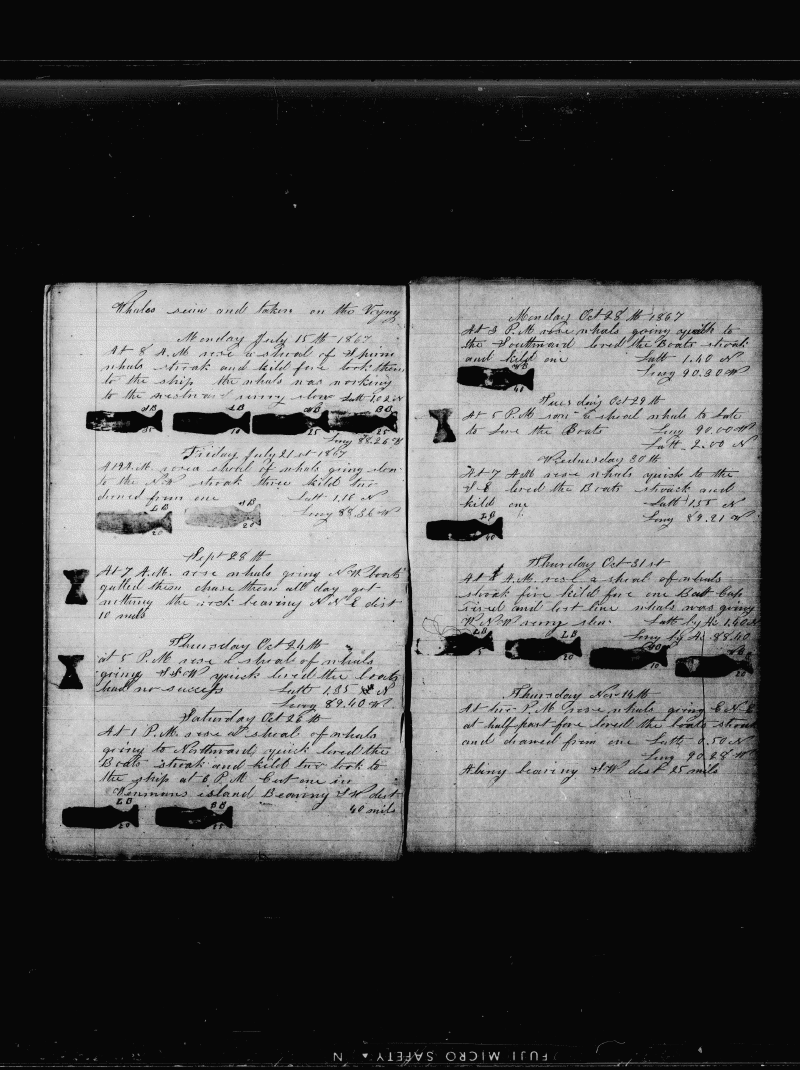 Whales seen and taken on the Voyag
Monday July 15th 1867
At 8 A.M. rose a shoal of Sperm
whals stroak and kild five took them
to the ship the whals was working
to the westward verry slow Latt 1.02 N
WB LB WB BB
35 10 25 25
Long 88.26 W
Friday July 21st 1867
At 9 A.M. rose a shoal of whals going slow
to the N.W stroak three kild two
drawed from one Latt 1.10 N
LB WB
20 20
Long 88.36 W
Sept 28th
At 7 A.M. rose whals going N.W boats
galled them chase them all day got
nothing the rock bearing N N E dist
10 mils
Thursday Oct 24th
at 5 P.M rose a shoal of whals
going S.S.W quick lored the boats
had no success Latt 1.35 N
Long 89.40 W
Saturday Oct 26th
At 1 P.M. rose a shoal of whals
going to Northward quick lored the
Boats stroak and kild two took to
the ship at 6 P.M. Cut one in
Wenmans island Bearing S W dist
40 mils
LB BB
20 25
Monday Oct 28th 1867
At 3 P.M rose whals going quick to
the Southward lored the Boats stroak
and kild one Latt 1.40 N
WB
40
Long 90.30 W
Tuesday Oct 29th
At 5 P.M saw a shoal whals to late
to lore the Boats Long 90.00 W
Latt 2.00 N
Wednesday 30th
At 7 A.M rose whals quick to the
S E lored the Boats stroack and
kild one Latt 1.55 N
LB
40
Long 89.21 W
Thursday Oct 31st
At A.M. rose a shoal of whals
stroak five kild five one Boat Cap
sised and lost line whals was going
W.N.W verry slow Latt by Ac 1.40 N
Long by Ac 88.40
LB LB WB
5 20 10 20
Thursday Nov 14th
At two P.M rose whals going E N E
at half past five lored the boats stroak
and drawed from one Latt 0.50 N
Long 90.28 W
Albany bearing S W dist 25 mils
FUJI MICRO SAFETY N